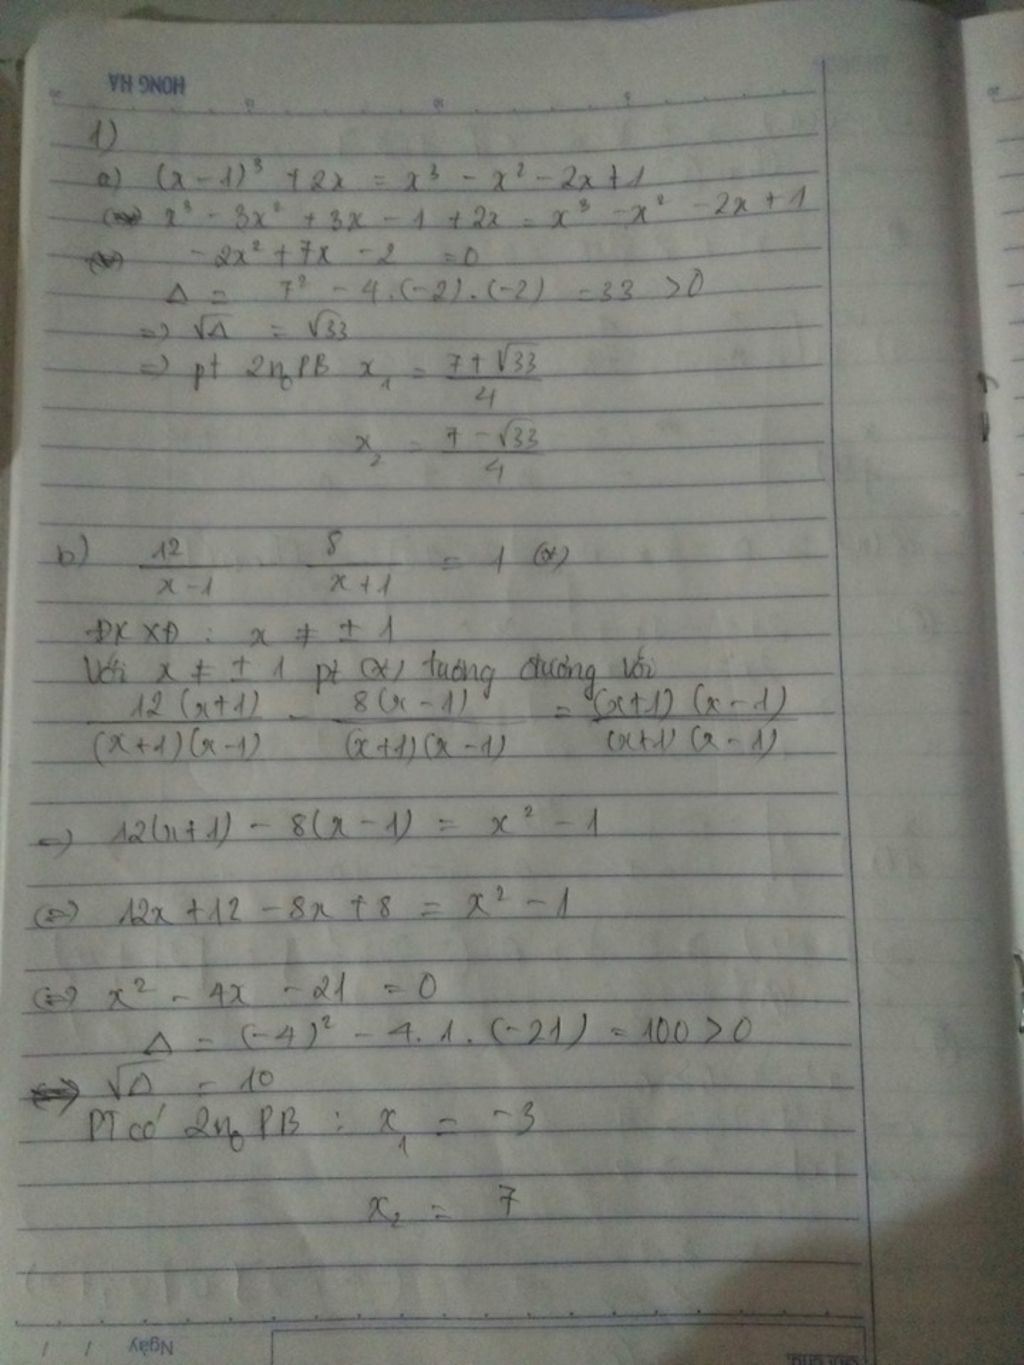 HONG HA
1)
a) (x - 1)³ + 2x = x³ - x² - 2x + 1
(=) x³ - 3x² + 3x - 1 + 2x = x³ - x² - 2x + 1
(=) -2x² + 7x - 2 = 0
Δ = 7² - 4.(-2).(-2) = 33 > 0
=) √Δ = √33
=) pt 2n₀ PB x₁ = (7 + √33)/4
x₂ = (7 - √33)/4
b) 12/(x - 1) - 8/(x + 1) = 1 (*)
ĐKXĐ : x ≠ ± 1
Với x ≠ ± 1 pt (*) tương đương với
12(x+1)/((x+1)(x-1)) - 8(x-1)/((x+1)(x-1)) = (x+1)(x-1)/((x+1)(x-1))
=) 12(x+1) - 8(x-1) = x² - 1
(=) 12x + 12 - 8x + 8 = x² - 1
(=) x² - 4x - 21 = 0
Δ = (-4)² - 4.1.(-21) = 100 > 0
√Δ = 10
PT có 2n₀ PB : x₁ = -3
x₂ = 7
Ngày / /